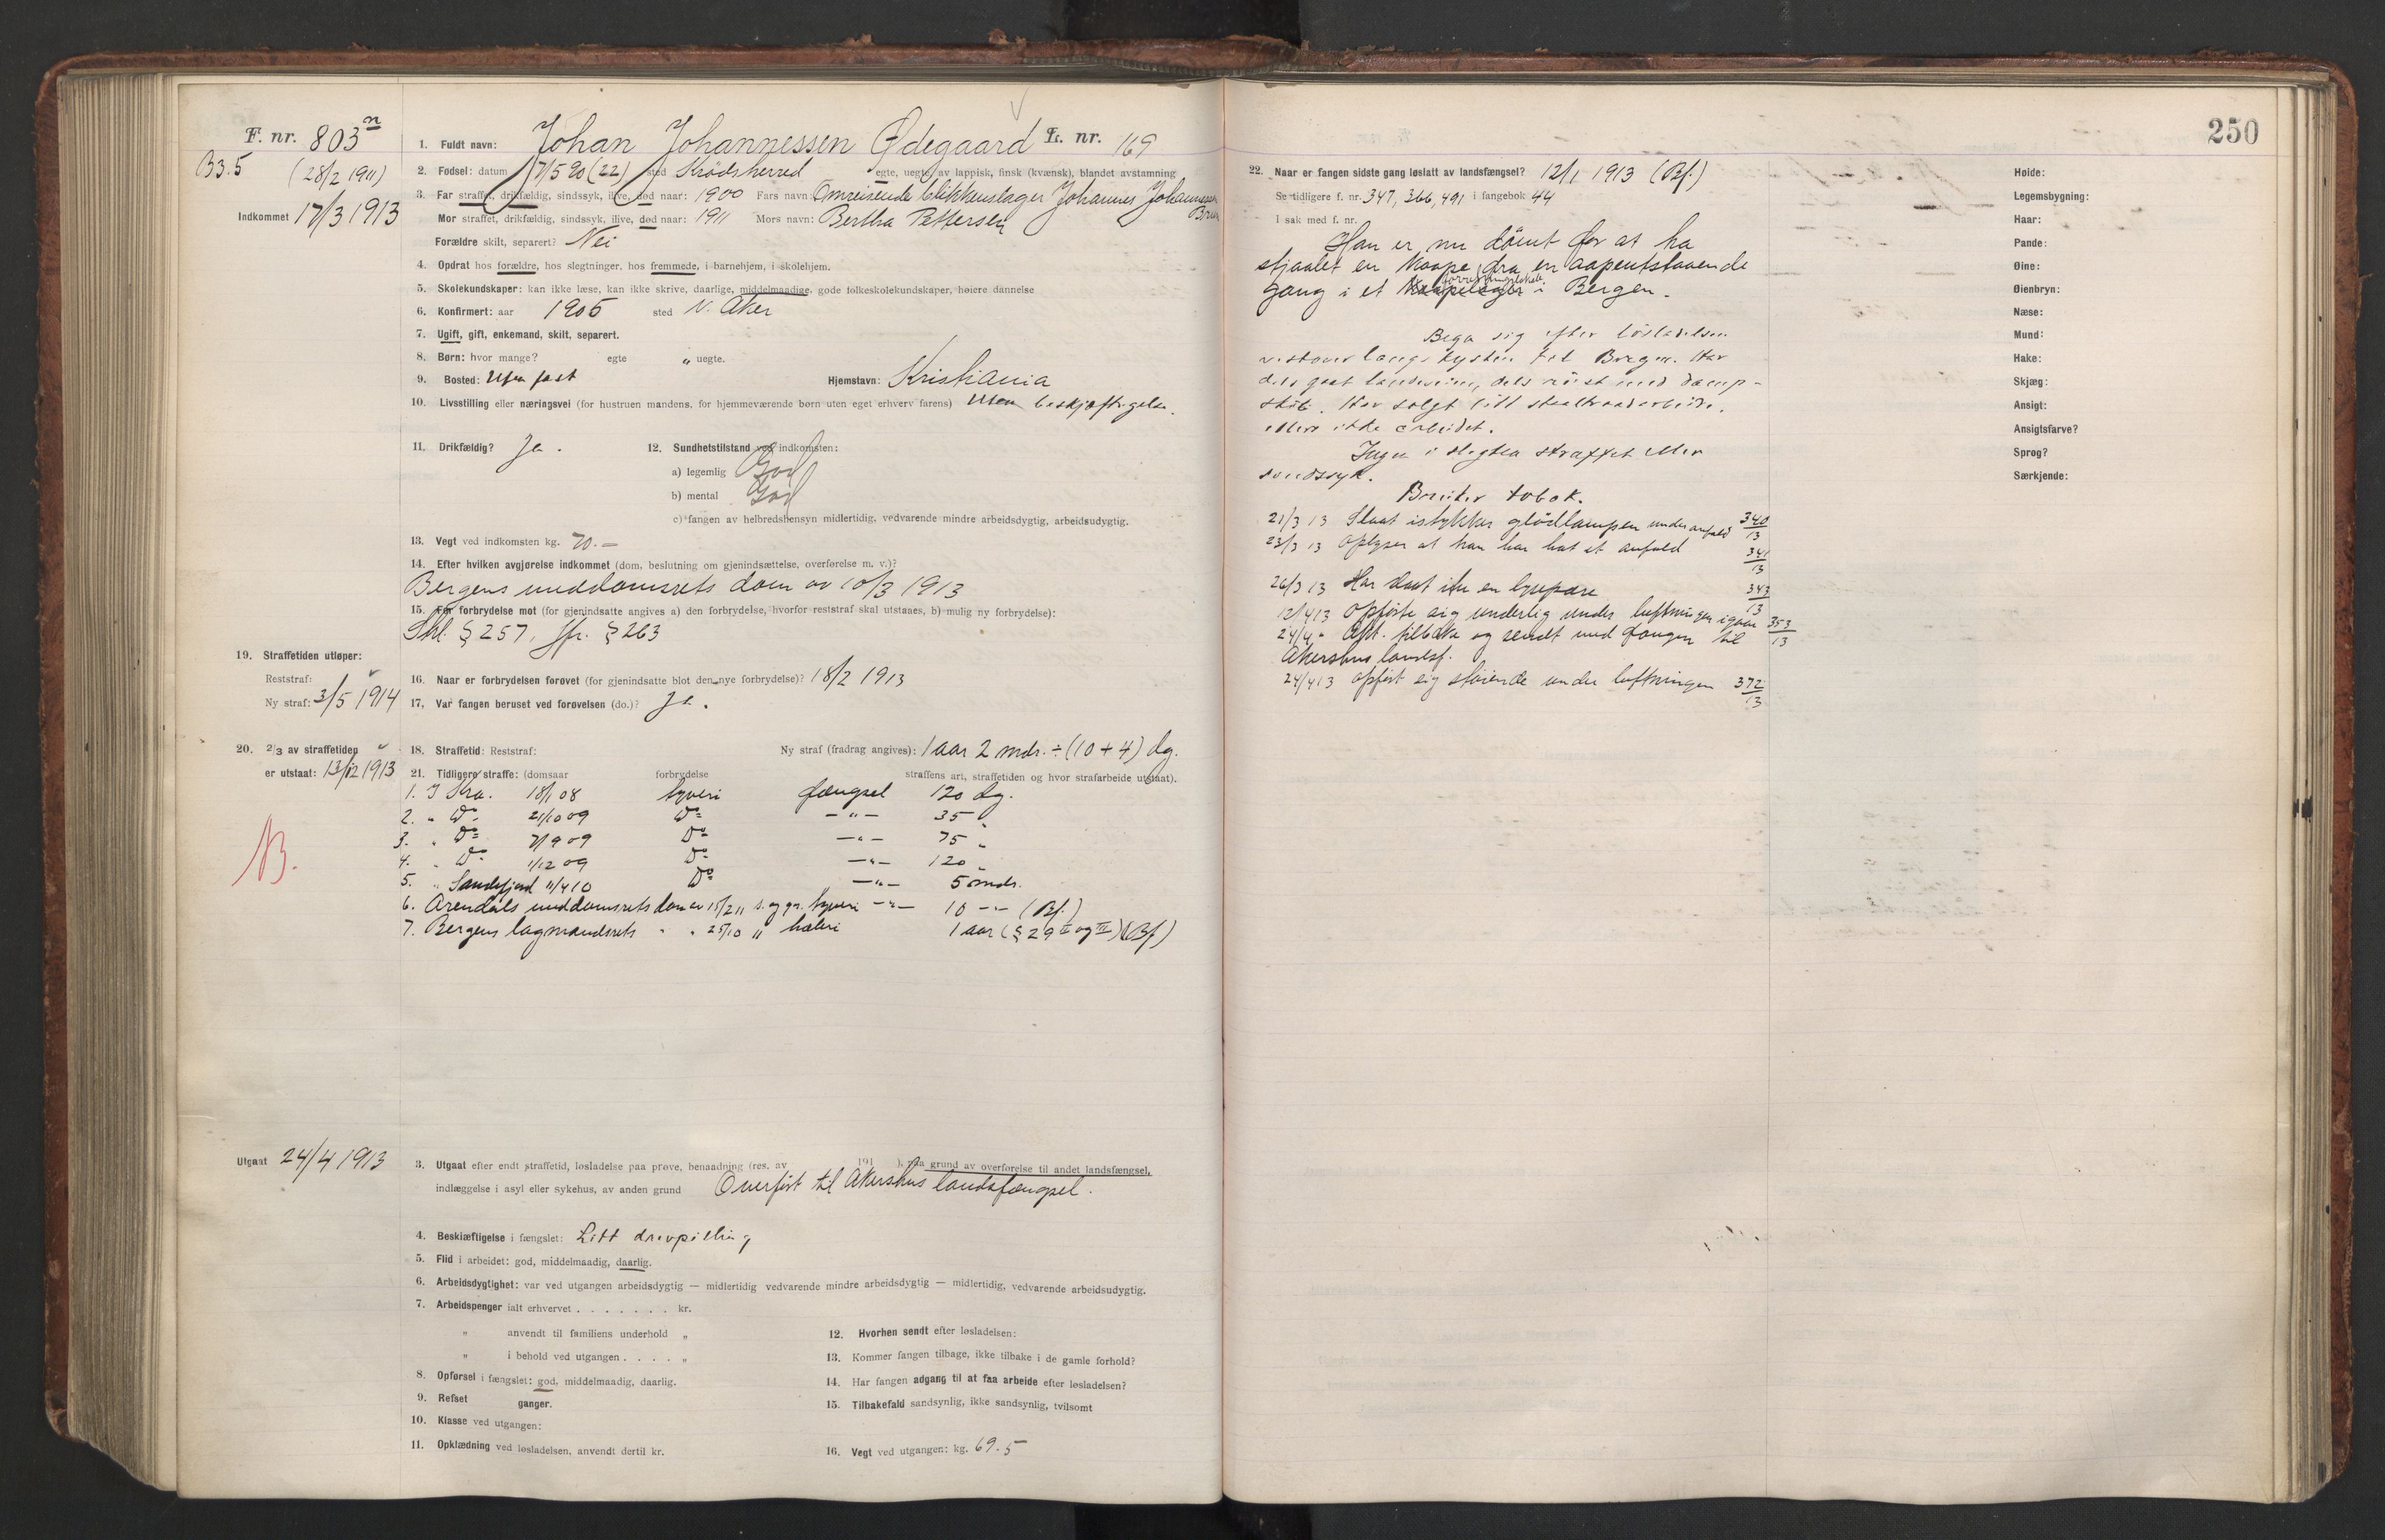 F. nr. 803 n
B3.5 (28/2 1911)
Indkommet 17/3 1913
1. Fuldt navn: Johan Johannessen Ødegaard L. nr. 169
2. Fødsel: datum 7/5 90 (22) sted Krødsherred egte, uegte, av lappisk, finsk (kvænsk), blandet avstamning
3. Far straffet, drikfældig, sindssyk, ilive, død naar: 1900 Fars navn: Omreisende blikkenslager Johannes Johannessen
Mor straffet, drikfældig, sindssyk, ilive, død naar: 1911 Mors navn: Bertha Pettersen
Forældre skilt, separert? Nei
4. Opdrat hos forældre, hos slegtninger, hos fremmede, i barnehjem, i skolehjem.
5. Skolekundskaper: kan ikke læse, kan ikke skrive, daarlige, middelmaadige, gode folkeskolekundskaper, høiere dannelse
6. Konfirmert: aar 1905 sted V. Aker
7. Ugift, gift, enkemand, skilt, separert.
8. Børn: hvor mange? egte „ uegte.
9. Bosted: Uten fast Hjemstavn: Kristiania
10. Livsstilling eller næringsvei (for hustruen mandens, for hjemmeværende børn uten eget erhverv farens) Uten beskjæftigelse.
11. Drikfældig? Ja. 12. Sundhetstilstand ved indkomsten:
a) legemlig God
b) mental God
c) fangen av helbredshensyn midlertidig, vedvarende mindre arbeidsdygtig, arbeidsudygtig.
13. Vegt ved indkomsten kg. 70.—
14. Efter hvilken avgjørelse indkommet (dom, beslutning om gjenindsættelse, overførelse m. v.)?
Bergens meddomsrets dom av 10/3 1913
15. For forbrydelse mot (for gjenindsatte angives a) den forbrydelse, hvorfor reststraf skal utstaaes, b) mulig ny forbrydelse):
Strl. § 257, jfr. § 263
19. Straffetiden utløper:
Reststraf:
Ny straf: 3/5 1914
16. Naar er forbrydelsen forøvet (for gjenindsatte blot den nye forbrydelse)? 18/2 1913
17. Var fangen beruset ved forøvelsen (do.)? Ja.
20. 2/3 av straffetiden
er utstaat: 13/12 1913
18. Straffetid: Reststraf: Ny straf (fradrag angives): 1 aar 2 mdr. ÷ (10 + 4) dg.
21. Tidligere straffe: (domsaar forbrydelse straffens art, straffetiden og hvor strafarbeide utstaat).
1. I Kra. 18/1 08 tyveri fængsel 120 dg.
2. " Do 21/10 09 Do —"— 35 "
3. " Do 7/9 09 Do —"— 75 "
4. " Do 1/12 09 Do —"— 120 "
5. " Sandefjord 11/4 10 Do —"— 5 mdr.
6. Arendals meddomsrets dom av 15/2 11 s. og gr. tyveri —"— 10 —"— (Bf.)
7. Bergens lagmandsrets " " 25/10 11 hæleri 1 aar (§ 29 II og III) (Bf)
B.
Utgaat 24/4 1913
3. Utgaat efter endt straffetid, løsladelse paa prøve, benaadning (res. av 191 ), paa grund av overførelse til andet landsfængsel,
indlæggelse i asyl eller sykehus, av anden grund Overført til Akershus landsfængsel.
4. Beskjæftigelse i fængslet: Litt drevpilling
5. Flid i arbeidet: god, middelmaadig, daarlig.
6. Arbeidsdygtighet: var ved utgangen arbeidsdygtig — midlertidig vedvarende mindre arbeidsdygtig — midlertidig, vedvarende arbeidsudygtig.
7. Arbeidspenger ialt erhvervet . . . . . . . kr.
„ anvendt til familiens underhold „
„ i behold ved utgangen . . . . „
8. Opførsel i fængslet: god, middelmaadig, daarlig.
9. Refset ganger.
10. Klasse ved utgangen:
11. Opklædning ved løsladelsen, anvendt dertil kr.
12. Hvorhen sendt efter løsladelsen:
13. Kommer fangen tilbage, ikke tilbake i de gamle forhold?
14. Har fangen adgang til at faa arbeide efter løsladelsen?
15. Tilbakefald sandsynlig, ikke sandsynlig, tvilsomt
16. Vegt ved utgangen: kg. 69.5
250
22. Naar er fangen sidste gang løslatt av landsfængsel? 12/1 1913 (Bf.)
Se tidligere f. nr. 347, 366, 491 i fangebok 44
I sak med f. nr.
Han er nu dømt for at ha
stjaalet en kaape fra en aapentstaaende
gang i et forretningslokale i Bergen.
Bega sig efter løsladelsen
vestover langs kysten til Bergen. Har
dels gaat landeveien, dels reist med damp-
skib. Har solgt litt staaltraadarbeide,
ellers ikke arbeidet.
Ingen i slegten straffet eller
sindssyk.
Bruker tobak.
21/3 13 Slaat istykker glødlampen under anfald 340/13
23/3 13 Oplyser at han har hat et anfald 341/13
26/3 13 Har slaat itu en lyspære 343/13
12/4 13 Opførte sig underlig under luftningen igaar 353/13
24/4 " Akt. tilbake og sendt med fangen til
Akershus landsf.
24/4 13 Opført sig støiende under luftningen 372/13
Høide:
Legemsbygning:
Haar:
Pande:
Øine:
Øienbryn:
Næse:
Mund:
Hake:
Skjæg:
Ansigt:
Ansigtsfarve?
Sprog?
Særkjende: